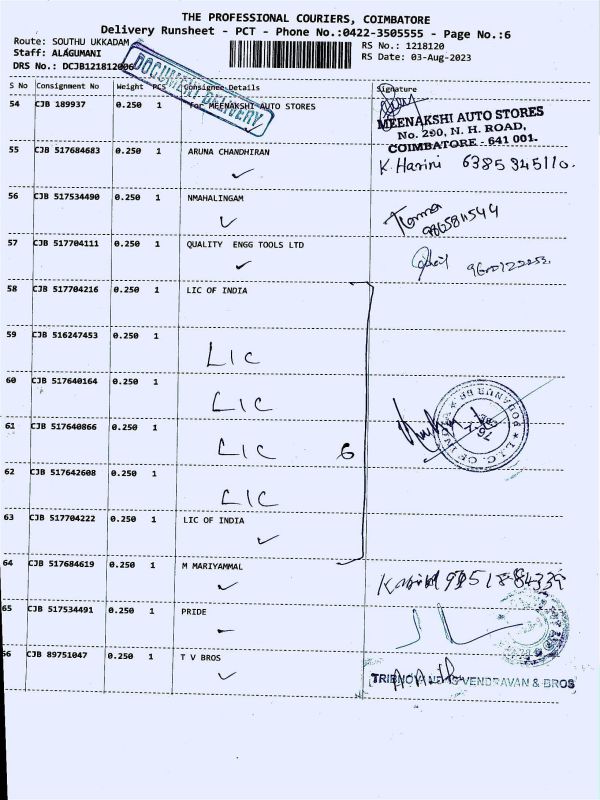 THE PROFESSIONAL COURIERS, COIMBATORE
Delivery Runsheet - PCT - Phone No.:0422-3505555 - Page No.:6
Route: SOUTHU UKKADAM
RS No.: 1218120
Staff: ALAGUMANI
RS Date: 03-Aug-2023
DRS No.: DCJB121812006
DOCUMENT DELIVERY
S No Consignment No Weight PCS Consignee Details Signature
54 CJB 189937 0.250 1 for MEENAKSHI AUTO STORES
MEENAKSHI AUTO STORES
No. 290, N. H. ROAD,
COIMBATORE - 641 001.
55 CJB 517684683 0.250 1 ARUNA CHANDHIRAN
K. Harini 6385945110.
56 CJB 517534490 0.250 1 NMAHALINGAM
9865811544
57 CJB 517704111 0.250 1 QUALITY ENGG TOOLS LTD
58 CJB 517704216 0.250 1 LIC OF INDIA
59 CJB 516247453 0.250 1
LIC
60 CJB 517640164 0.250 1
LIC
61 CJB 517640866 0.250 1
LIC 6
62 CJB 517642608 0.250 1
LIC
63 CJB 517704222 0.250 1 LIC OF INDIA
L.I.C. OF INDIA
PODANUR BR
64 CJB 517684619 0.250 1 M MARIYAMMAL
65 CJB 517534491 0.250 1 PRIDE
66 CJB 89751047 0.250 1 T V BROS
VENDRAVAN & BROS